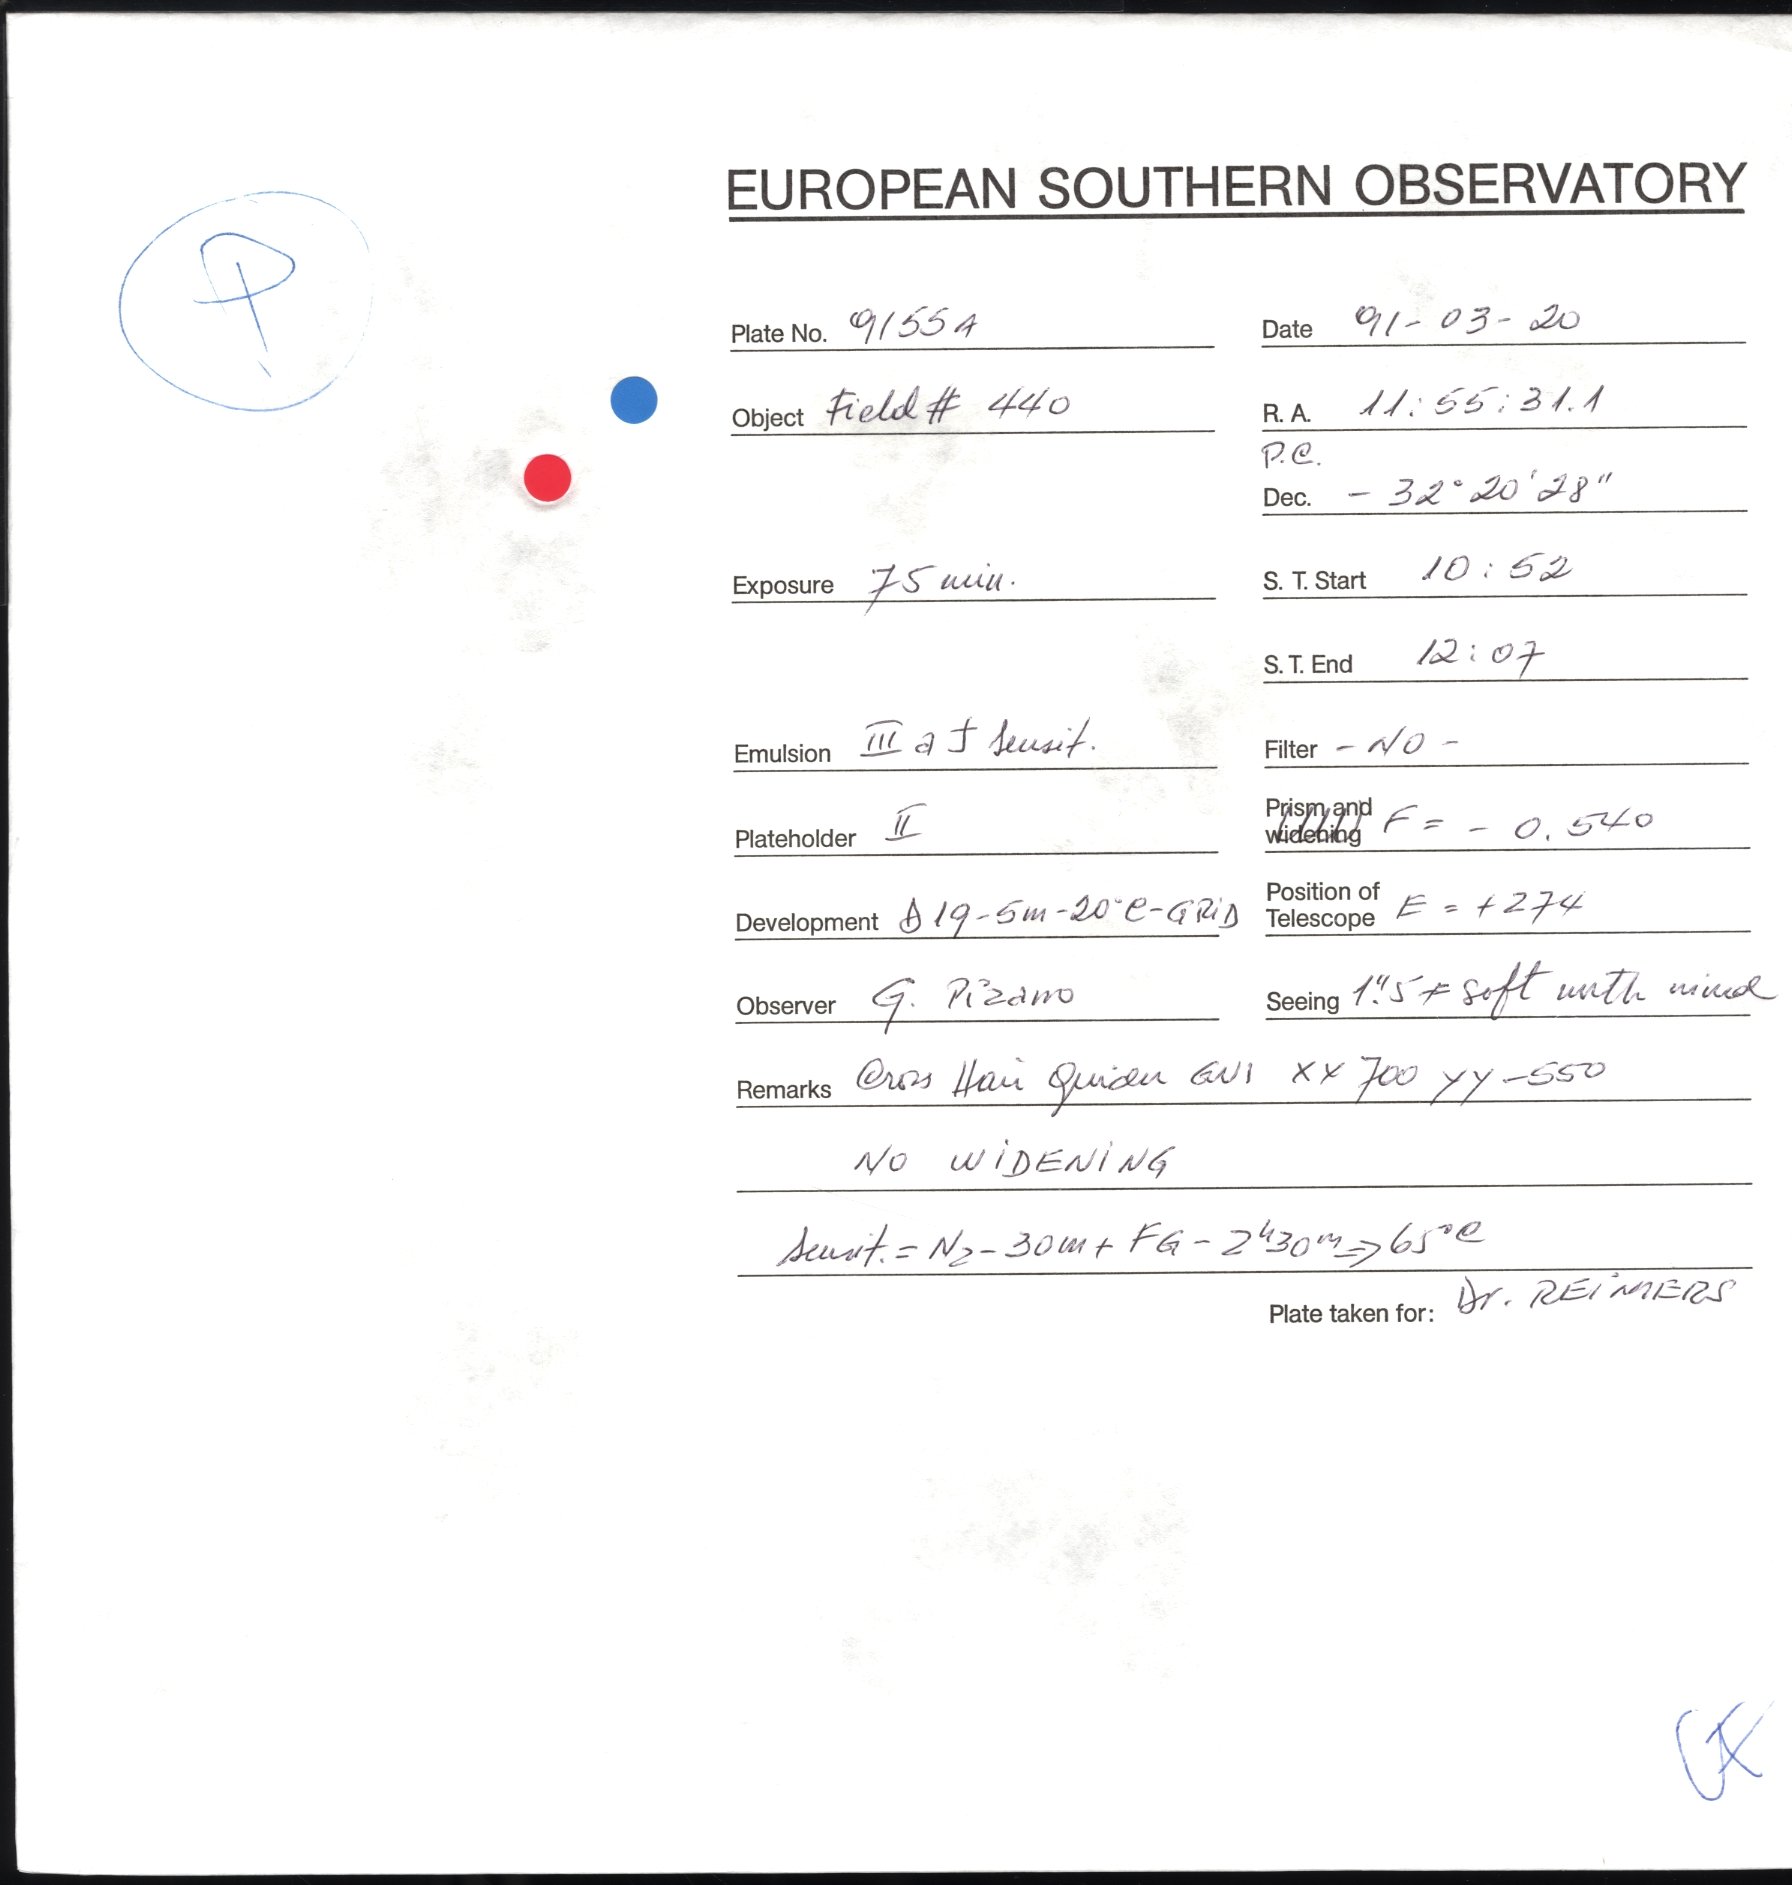 P
EUROPEAN SOUTHERN OBSERVATORY
Plate No. 9155A
Date 91-03-20
Object Field # 440
R. A. 11:55:31.1
P.C.
Dec. - 32° 20' 28"
Exposure 75 min.
S. T. Start 10:52
S. T. End 12:07
Emulsion III a J Sensit.
Filter - NO -
Plateholder II
Prism and widening F = - 0.540
Development D19-5m-20°C-GRiD
Position of Telescope E = +274
Observer G. Pizarro
Seeing 1".5 soft with
Remarks Cross Hair XX 700 YY -550
NO WiDENiNG
Sensit. = N2-30m + FG - 2h30m => 65°C
Plate taken for: Dr. REiMERS